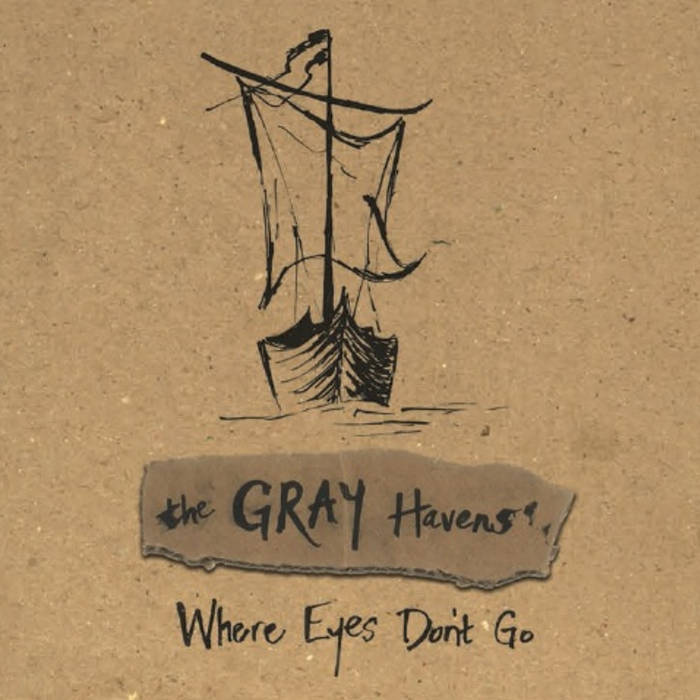 the GRAY Havens
Where Eyes Don't Go